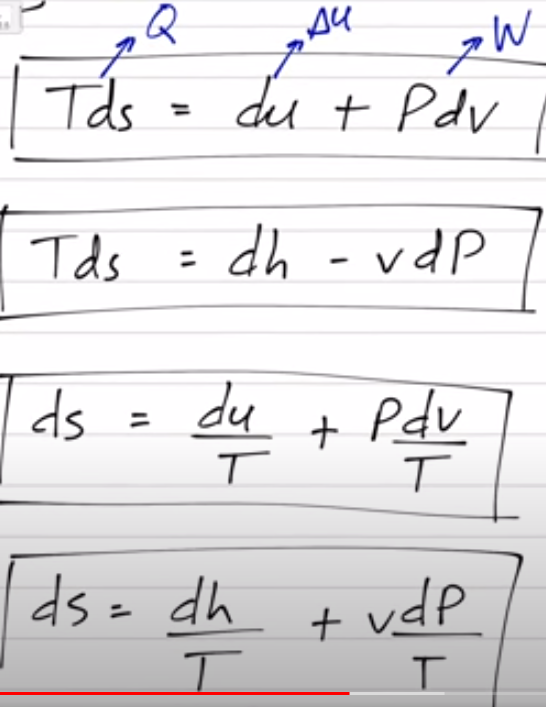 Q ΔU W
Tds = du + Pdv
Tds = dh - vdP
ds = du/T + Pdv/T
ds = dh/T + vdP/T